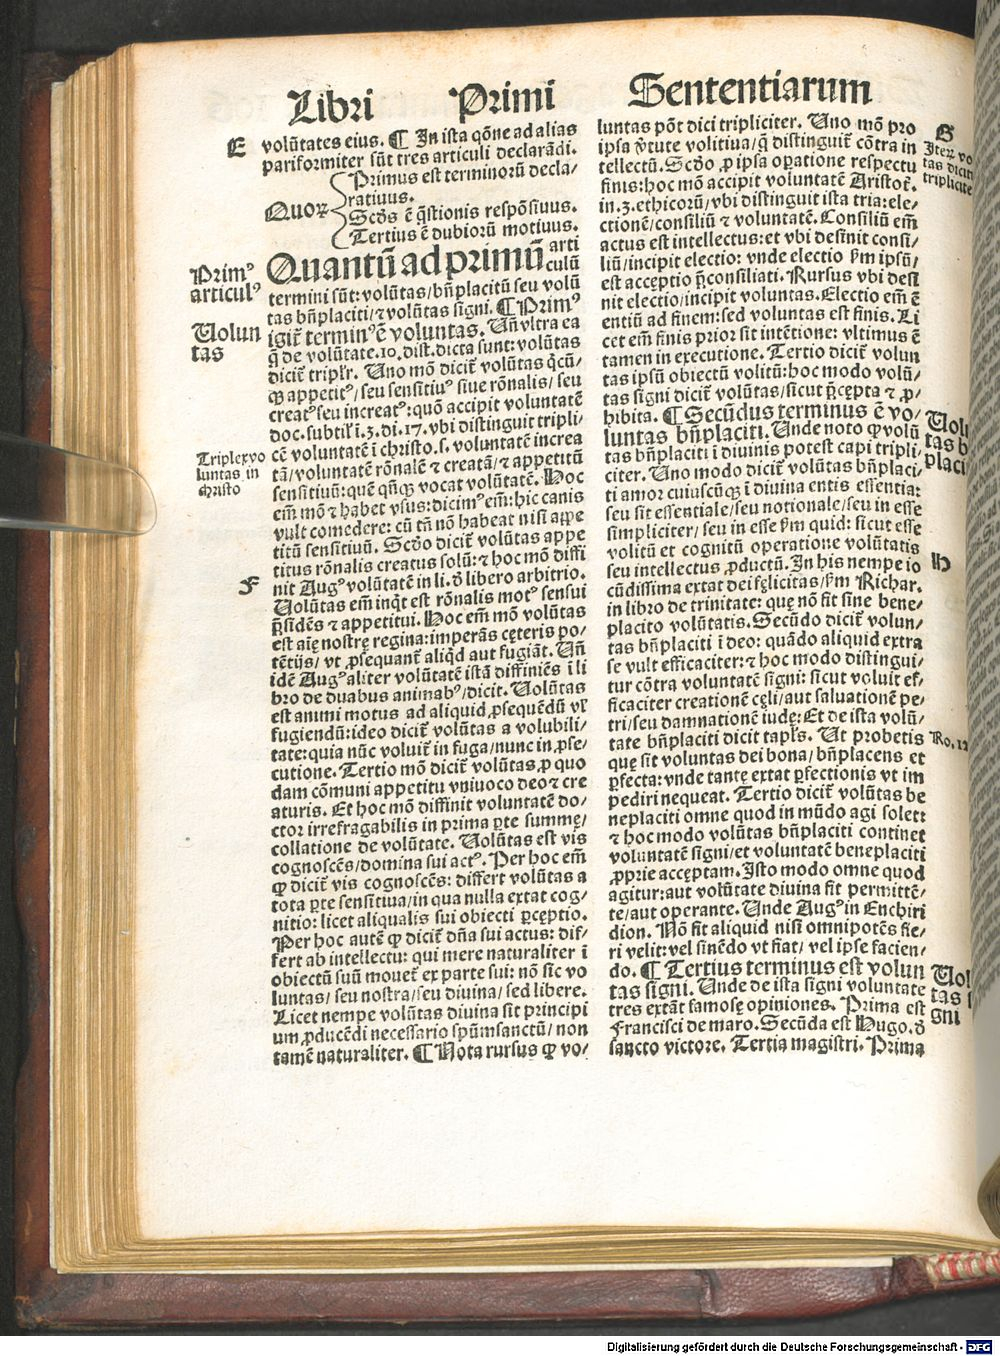 Libri Primi Sententiarum
E
volũtates eius. ¶ In ista qõne ad alias
pariformiter sũt tres articuli declarãdi.
Primus est terminorũ decla/
ratiuus.
Quoꝝ
Scďs ē q̃stionis respõsiuus.
Tertius ē dubiorũ motiuus.
Primꝰ
articulꝰ
Quantũ ad primũ arti
culũ
termini sũt: volũtas/bñplacitũ seu volũ
tas bñplaciti/⁊ volũtas signi. ¶ Primꝰ
Uolun
tas
igit̃ terminꝰ ē voluntas. Uñ vltra ea
q̃ de volũtate .10. dist. dicta sunt: volũtas
dicit̃ tripl̃r. Uno mõ dicit̃ volũtas q̃cũ/
qꝫ appetitꝰ/seu sensitiuꝰ siue rõnalis/seu
creatꝰ seu increatꝰ: quõ accipit voluntatē
doc. subtil̃ ĩ .3. di. 17. vbi distinguit tripli/
Triplex vo
luntas in
christo
cē voluntatē ĩ christo .s. voluntatē increa
tã/voluntatē rõnalē ⁊ creatã/⁊ appetitũ
sensitiuũ: quē q̃nqꝫ vocat volũtatē. Hoc
em̃ mõ ⁊ habet vsus: dicimꝰ em̃: hic canis
vult comedere: cũ tñ nõ habeat nisi appe
titũ sensitiuũ. Scďo dicit̃ volũtas appe
titus rõnalis creatus solũ: ⁊ hoc mõ diffi
F
nit Augꝰ volũtatē in li. ď libero arbitrio.
Uolũtas em̃ inq̃t est rõnalis motꝰ sensui
p̃sidēs ⁊ appetitui. Hoc em̃ mõ volũtas
est aĩe nostrę regina: imperãs cęteris po/
tētijs/vt ꝓsequant̃ aliq̃d aut fugiãt. Uñ
idē Augꝰ aliter volũtatē istã diffiniēs ĩ li
bro de duabus animabꝰ/dicit. Uolũtas
est animi motus ad aliquid ꝓsequēdũ vl̃
fugiendũ: ideo dicit̃ volũtas a volubili/
tate: quia nũc voluit̃ in fuga/nunc in ꝓse/
cutione. Tertio mõ dicit̃ volũtas/ꝓ quo
dam cõmuni appetitu vniuoco deo ⁊ cre
aturis. Et hoc mõ diffinit voluntatē do/
ctor irrefragabilis in prima ꝑte summę/
collatione de volũtate. Uolũtas est vis
cognoscēs/domina sui actꝰ. Per hoc em̃
ꝙ dicit̃ vis cognoscēs: differt volũtas a
tota ꝑte sensitiua/in qua nulla extat cog/
nitio: licet aliqualis sui obiecti ꝑceptio.
Per hoc autē ꝙ dicit̃ dña sui actus: dif/
fert ab intellectu: qui mere naturaliter ĩ
obiectũ suũ mouet̃ ex parte sui: nõ sic vo
luntas/seu nostra/seu diuina/sed libere.
Licet nempe volũtas diuina sit principi
um ꝓducēdi necessario spũmsanctũ/non
tamē naturaliter. ¶ Nota rursus ꝙ vo/
luntas põt dici tripliciter. Uno mõ pro
G
Iteꝝ vo
tas dicit̃
triplicite
ipsa v̓tute volitiua/q̃ distinguit̃ cõtra in
tellectũ. Scďo ꝓ ipsa oꝑatione respectu
finis: hoc mõ accipit voluntatē Aristot̃.
in .3. ethicorũ/vbi distinguit ista tria: ele/
ctionē/consiliũ ⁊ voluntatē. Consiliũ em̃
actus est intellectus: et vbi desinit consi/
liũ/incipit electio: vnde electio ẜm ipsũ/
est acceptio p̃consiliati. Rursus vbi desi
nit electio/incipit voluntas. Electio em̃ ē
entiũ ad finem: sed voluntas est finis. Li
cet em̃ finis prior sit intētione: vltimus ē
tamen in executione. Tertio dicit̃ volun
tas ipsũ obiectũ volitũ: hoc modo volũ/
tas signi dicit̃ volũtas/sicut p̃cepta ⁊ ꝓ/
hibita. ¶ Secũdus terminus ē vo/
Uolũ
tas b
placi
luntas bñplaciti. Unde noto ꝙ volũ
tas bñplaciti ĩ diuinis potest capi tripli/
citer. Uno modo dicit̃ volũtas bñplaci/
ti amor cuiuscũqꝫ ĩ diuina entis essentia:
seu sit essentiale/seu notionale/seu in esse
simpliciter/seu in esse ẜm quid: sicut esse
volitũ et cognitũ operatione volũtatis
H
seu intellectus ꝓductũ. In his nempe io
cũdissima extat dei fęlicitas/ẜm Richar.
in libro de trinitate: quę nõ fit sine bene/
placito volũtatis. Secũdo dicit̃ volun/
tas bñplaciti ĩ deo: quãdo aliquid extra
se vult efficaciter: ⁊ hoc modo distingui/
tur cõtra voluntatē signi: sicut voluit ef/
ficaciter creationē cęli/aut saluationē pe/
tri/seu damnationē iudę: Et de ista volũ/
tate bñplaciti dicit tapl̃s. Ut probetis
Ro. 12
quę sit voluntas dei bona/bñplacens et
ꝑfecta: vnde tantę extat ꝑfectionis vt im
pediri nequeat. Tertio dicit̃ volũtas be
neplaciti omne quod in mũdo agi solet:
⁊ hoc modo volũtas bñplaciti continet
voluntatē signi/et voluntatē beneplaciti
ꝓprie acceptam. Isto modo omne quod
agitur: aut volũtate diuina fit permittē/
te/aut operante. Unde Augꝰ in Enchiri
dion. Nõ fit aliquid nisi omnipotēs fie/
ri velit: vel sinēdo vt fiat/vel ipse facien/
do. ¶ Tertius terminus est volun
Uol
tas s
gni
tas signi. Unde de ista signi voluntate
tres extãt famosę opiniones. Prima est
Francisci de maro. Secũda est Hugo. ď
sancto victore. Tertia magistri. Prima
Digitalisierung gefördert durch die Deutsche Forschungsgemeinschaft - DFG